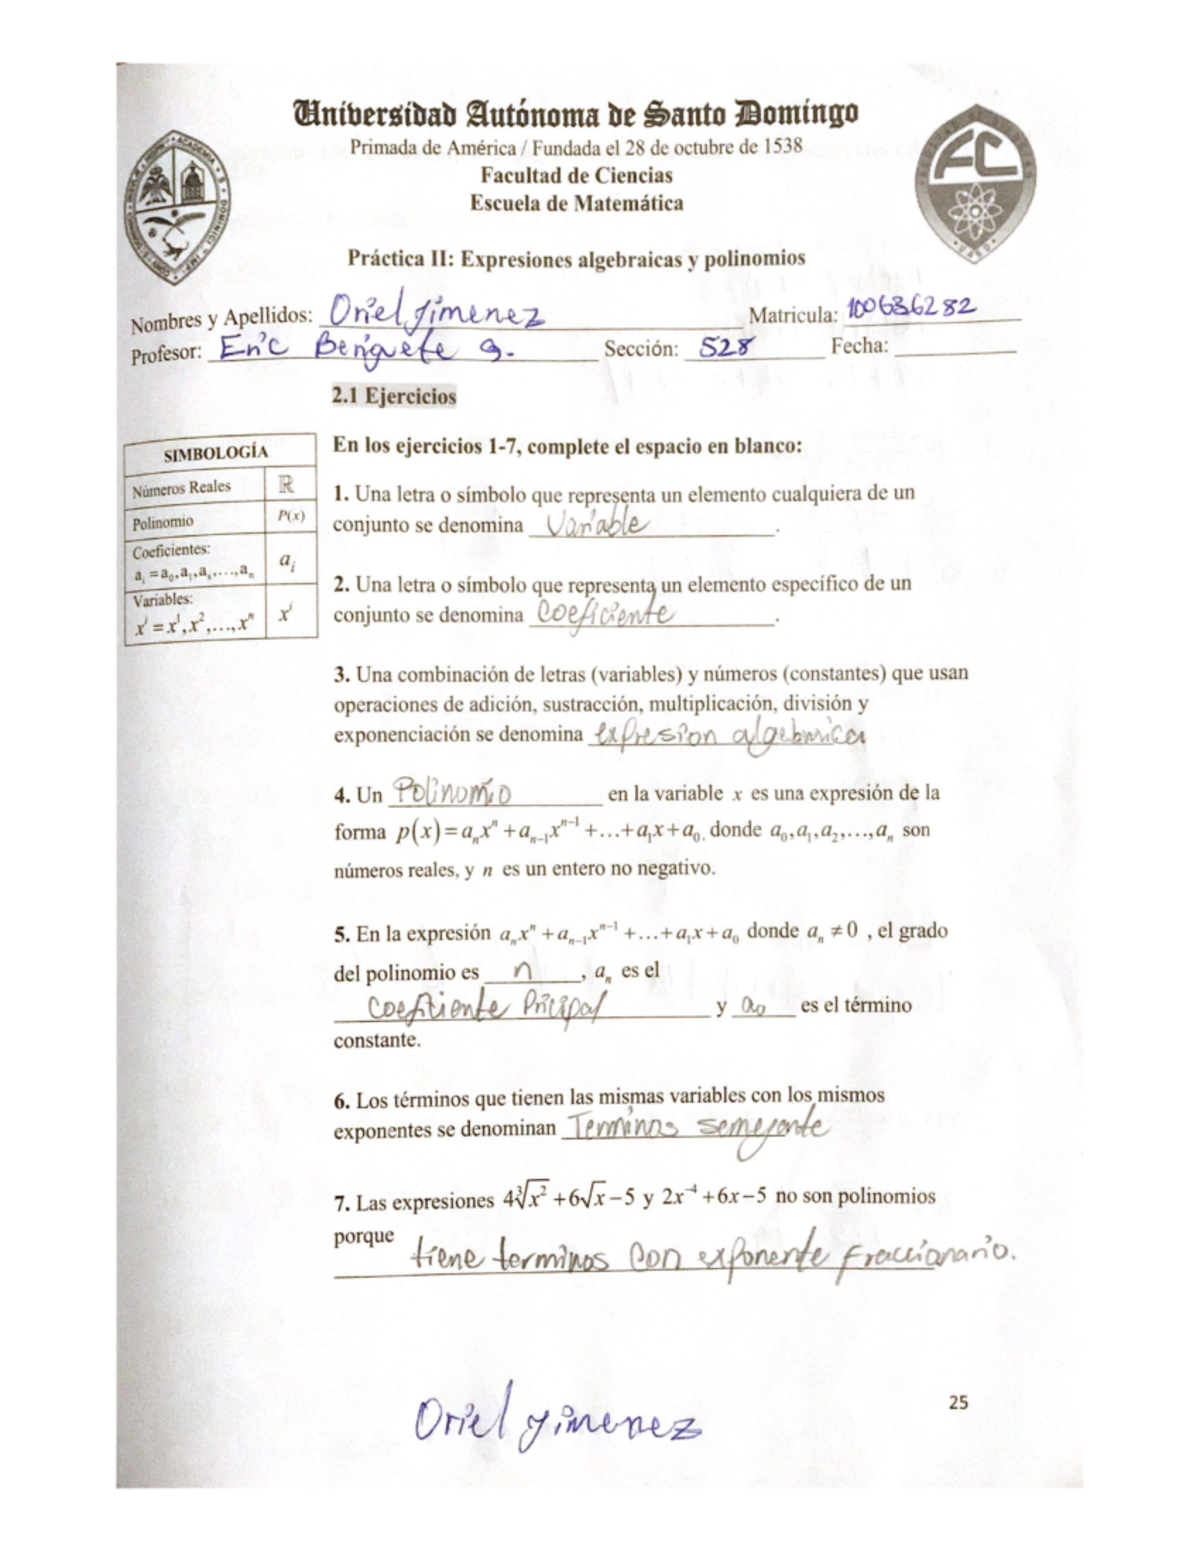 Universidad Autónoma de Santo Domingo
Primada de América / Fundada el 28 de octubre de 1538
Facultad de Ciencias
Escuela de Matemática
Práctica II: Expresiones algebraicas y polinomios
Nombres y Apellidos: Oriel Jimenez Matricula: 100636282
Profesor: Eric Beriguete g. Sección: 528 Fecha:
2.1 Ejercicios
SIMBOLOGÍA
Números Reales ℝ
Polinomio P(x)
Coeficientes:
aᵢ = a₀, a₁, aₛ, ..., aₙ aᵢ
Variables:
xⁱ = x¹, x², ..., xⁿ xⁱ
En los ejercicios 1-7, complete el espacio en blanco:
1. Una letra o símbolo que representa un elemento cualquiera de un
conjunto se denomina Variable.
2. Una letra o símbolo que representa un elemento específico de un
conjunto se denomina Coeficiente.
3. Una combinación de letras (variables) y números (constantes) que usan
operaciones de adición, sustracción, multiplicación, división y
exponenciación se denomina expresion algebraica
4. Un Polinomio en la variable x es una expresión de la
forma p(x) = aₙxⁿ + aₙ₋₁xⁿ⁻¹ + ... + a₁x + a₀, donde a₀, a₁, a₂, ..., aₙ son
números reales, y n es un entero no negativo.
5. En la expresión aₙxⁿ + aₙ₋₁xⁿ⁻¹ + ... + a₁x + a₀ donde aₙ ≠ 0 , el grado
del polinomio es n , aₙ es el
Coefitiente Pricipal y a₀ es el término
constante.
6. Los términos que tienen las mismas variables con los mismos
exponentes se denominan Terminos semejante
7. Las expresiones 4∛x² + 6√x − 5 y 2x⁻⁴ + 6x − 5 no son polinomios
porque
tiene terminos con exponente fraccionario.
25
Oriel Jimenez